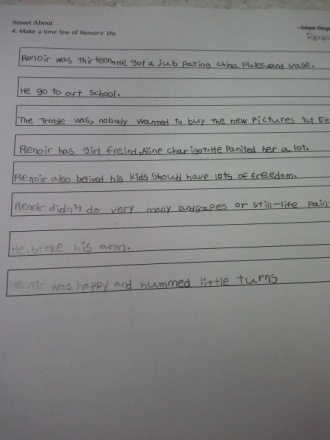 Smart About
4. Make a time line of Renoir's life.
Renoir was thirteen He got a Jub Pating china Plates, and vase.
He go to art School.
The Troble was, nobody wanted to buy the new Pictures
Renoir has girl freind, Aline charigot. He Panited her a lot.
Renoir also belived his kids Shoud have lots of freedom.
Renoir didn't do very many landscapes or still-life pain
He, broke his arm.
Renoir was happy and hummed little turns